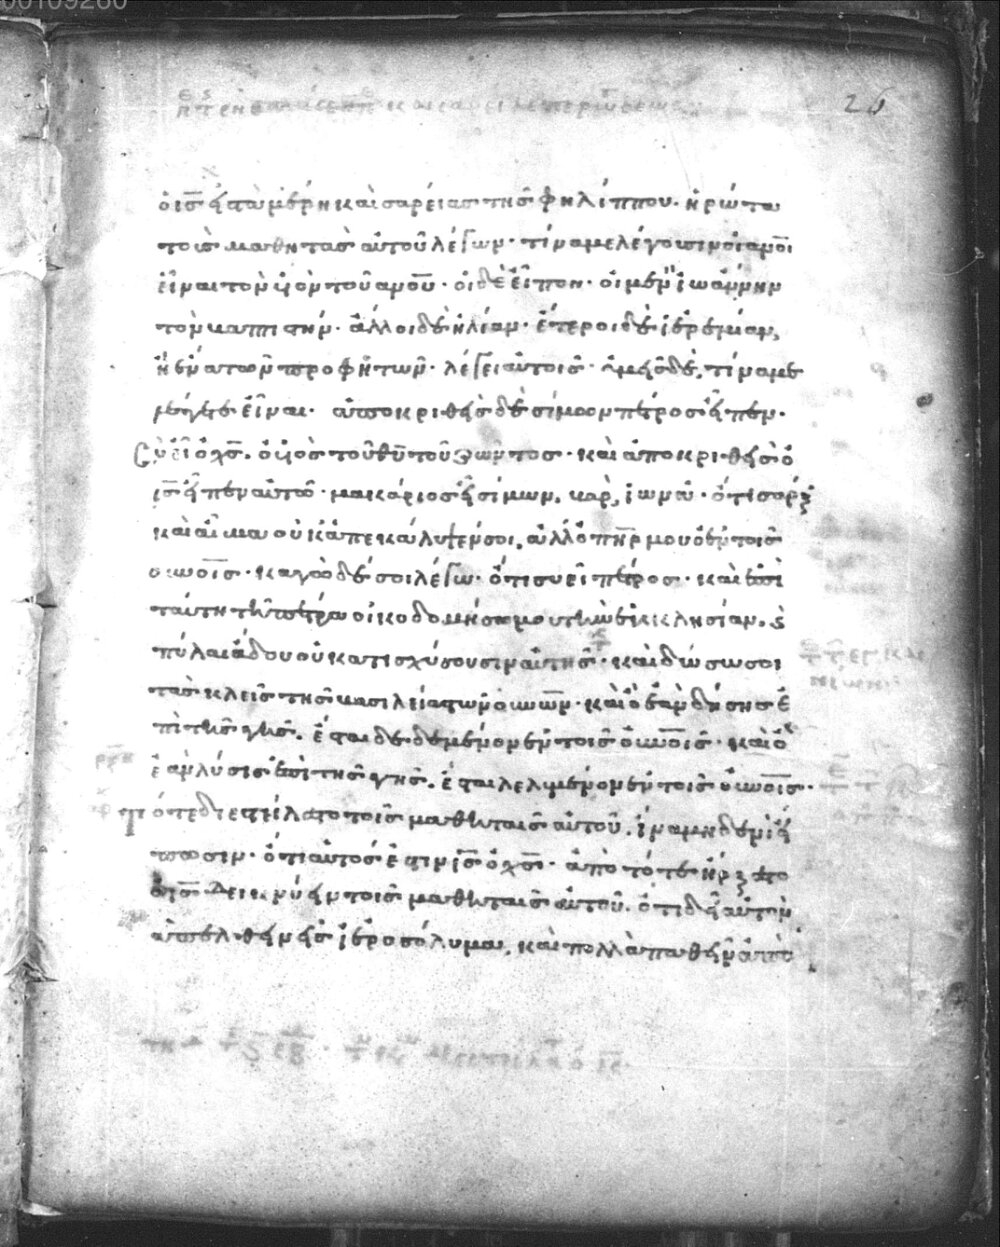 00109260
26
ὁ ις̅ εἰς τὰ μέρη καισαρείας τῆς φιλίππου· ἠρώτα
τοὺς μαθητὰς αὐτοῦ λέγων· τίνα με λέγουσιν οἱ ανοι
εἶναι τὸν υἱὸν τοῦ ανου· οἱ δὲ εἶπον· οἱ μὲν ἰωάννην
τὸν βαπτιστήν· ἄλλοι δὲ ἠλίαν· ἕτεροι δὲ ἱερεμίαν,
ἢ ἕνα τῶν προφητῶν· λέγει αὐτοῖς· ὑμεῖς δὲ, τίνα με
λέγετε εἶναι· ἀποκριθεὶς δὲ σίμων πέτρος εἶπεν·
Σὺ εἶ ὁ χς̅. ὁ υἱὸς τοῦ θυ̅ τοῦ ζῶντος· καὶ ἀποκριθεὶς ὁ
ις̅ εἶπεν αὐτῶ· μακάριος εἶ σίμων, βὰρ, ἰωνᾶ· ὅτι σὰρξ
καὶ αἷμα οὐκ ἀπεκάλυψέν σοι, ἀλλ' ὁ πηρ̅ μου ὁ ἐν τοῖς
οὐνοις· καγὼ δέ σοι λέγω· ὅτι συ εἶ πέτρος· καὶ ἐπὶ
ταύτη τῆ πέτρα οἰκοδομήσω μου τὴν ἐκκλησίαν, καὶ
πύλαι ἅδου οὐ κατισχύσουσιν αὐτῆς· καὶ δώσω σοι
τὰς κλεῖς τῆς βασιλείας τῶν οὐνων· καὶ ὃ ἐὰν δήσης ἐ
πὶ τῆς γῆς. ἔσται δεδεμένον ἐν τοῖς οὐνοις· καὶ ὃ
ἐὰν λύσις ἐπὶ τῆς γῆς. ἔσται λελυμένον ἐν τοῖς οὐνοις·
Τότε διεστείλατο τοῖς μαθηταῖς αὐτοῦ. ἵνα μηδενὶ εἴ
πωσιν· ὅτι αὐτός ἐστιν ις̅ ὁ χς̅· ἀπὸ τότε ἤρξατο
ὁ ις̅ δεικνύειν τοῖς μαθηταῖς αὐτοῦ. ὅτι δεῖ αὐτὸν
ἀπελθεῖν εἰς ἱεροσόλυμα, καὶ πολλὰ παθεῖν ἀπὸ